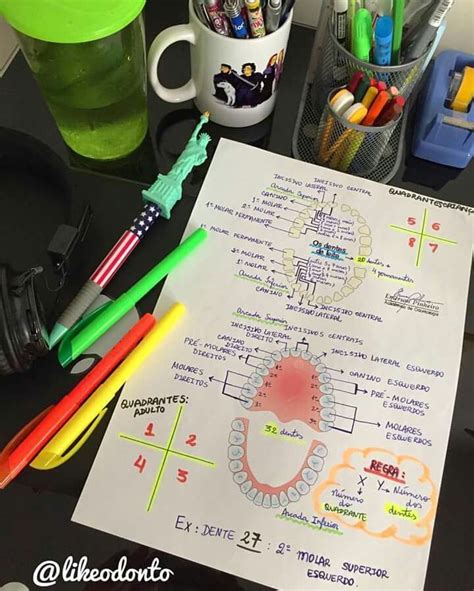 INCISIVO LATERAL
INCISIVO CENTRAL
Arcada Superior
CANINO
1º MOLAR
2º MOLAR
1º MOLAR PERMANENTE
Os dentes
de leite
20 dentes +
4 permanentes
1º MOLAR PERMANENTE
2º MOLAR
1º MOLAR
Arcada Inferior
CANINO
INCISIVO CENTRAL
INCISIVO LATERAL
QUADRANTES
5 6
8 7
Arcada Superior
INCISIVO LATERAL
DIREITO
INCISIVOS CENTRAIS
INCISIVO LATERAL ESQUERDO
CANINO
DIREITO
CANINO ESQUERDO
PRÉ-MOLARES
DIREITOS
PRÉ-MOLARES
ESQUERDOS
MOLARES
DIREITOS
MOLARES
ESQUERDOS
32 dentes
QUADRANTES:
ADULTO
1 2
4 3
Arcada Inferior
REGRA:
X Y → Número
dos
dentes
Número
do
QUADRANTE
EX: DENTE 27 : 2º MOLAR SUPERIOR
ESQUERDO.
@likeodonto